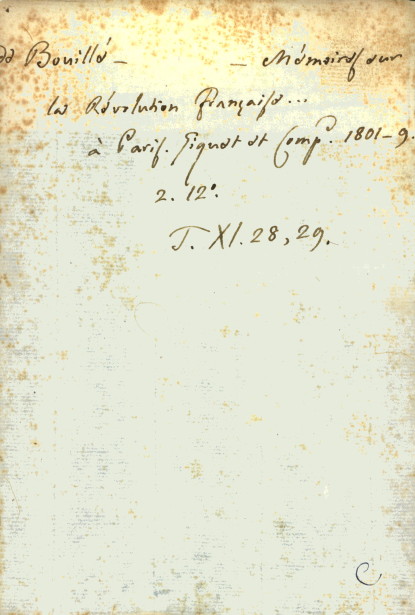 de Bouillé — — Mémoires sur
la Révolution française...
à Paris. Giguet et Comp. 1801-9.
2. 12°.
T. XI. 28, 29.
C